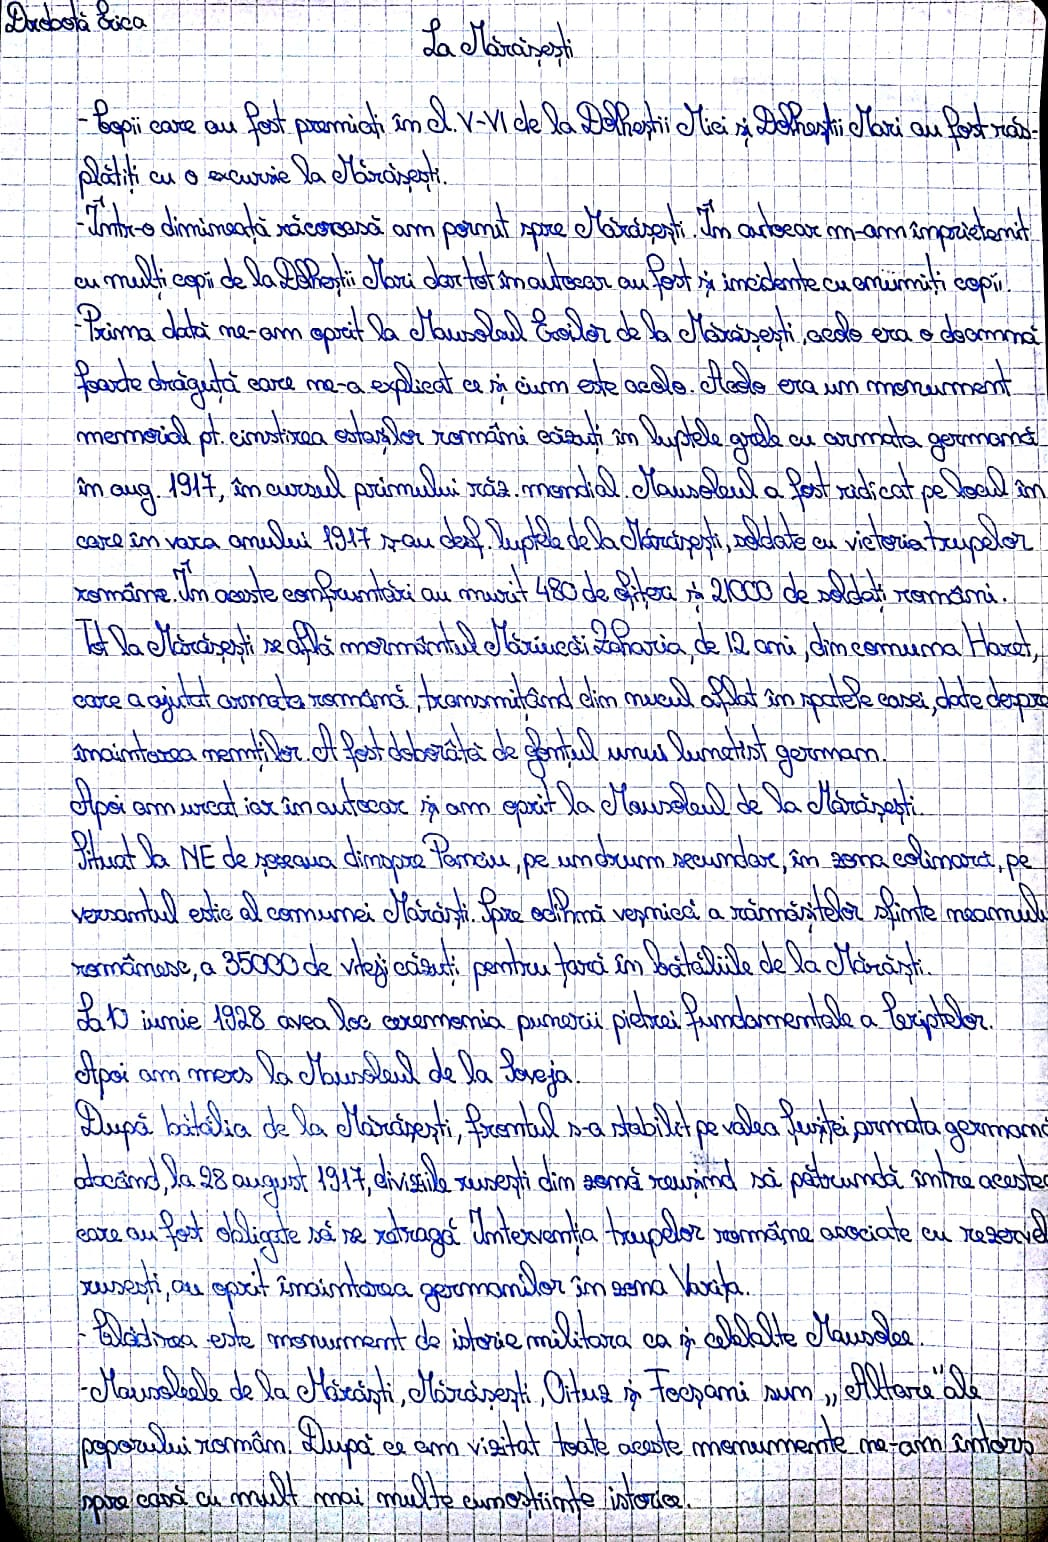 Drobotă Erica
La Mărășești
- Copii care au fost premiați în cl. V-VI de la Dolheștii Mici și Dolheștii Mari au fost răs-
plătiți cu o excursie la Mărășești.
- Într-o dimineață răcoroasă am pornit spre Mărășești. În autocar m-am împrietenit
cu mulți copii de la Dolheștii Mari dar tot în autocar au fost și incidente cu anumiți copii.
- Prima dată ne-am oprit la Mausoleul Eroilor de la Mărășești, acolo era o doamnă
foarte drăguță care ne-a explicat ce și cum este acolo. Acolo era un monument
memorial pt. cinstirea ostașilor români căzuți în luptele grele cu armata germană
în aug. 1917, în cursul primului răz. mondial. Mausoleul a fost ridicat pe locul în
care în vara anului 1917 s-au desf. luptele de la Mărășești, soldate cu victoria trupelor
române. În aceste confruntări au murit 480 de ofițeri și 21000 de soldați români.
Tot la Mărășești se află mormântul Măriucăi Zaharia, de 12 ani, din comuna Haret,
care a ajutat armata română, transmițând din nucul aflat în spatele casei, date despre
înaintarea nemților. A fost doborâtă de glonțul unui lunetist german.
Apoi am urcat iar în autocar și am oprit la Mausoleul de la Mărășești.
Situat la NE de șoseaua dinspre Panciu, pe un drum secundar, în zona colinară, pe
versantul estic al comunei Mărăști. Spre odihnă veșnică a rămășițelor sfinte neamului
românesc, a 35000 de viteji căzuți pentru țară în bătăliile de la Mărăști.
La 10 iunie 1928 avea loc ceremonia punerii pietrei fundamentale a Criptelor.
Apoi am mers la Mausoleul de la Soveja.
După bătălia de la Mărășești, frontul s-a stabilit pe valea Șușiței, armata germană
atacând, la 28 august 1917, diviziile rusești din zonă reușind să pătrundă între aceste
care au fost obligate să se retragă. Intervenția trupelor române asociate cu rezerve
rusești, au oprit înaintarea germanilor în zona Varnița.
- Clădirea este monument de istorie militara ca și celelalte Mausolee.
- Mausoleele de la Mărăști, Mărășești, Oituz și Focșani sunt „Altare" ale
poporului român. După ce am vizitat toate aceste monumente ne-am întors
spre casă cu mult mai multe cunoștiințe istorice.